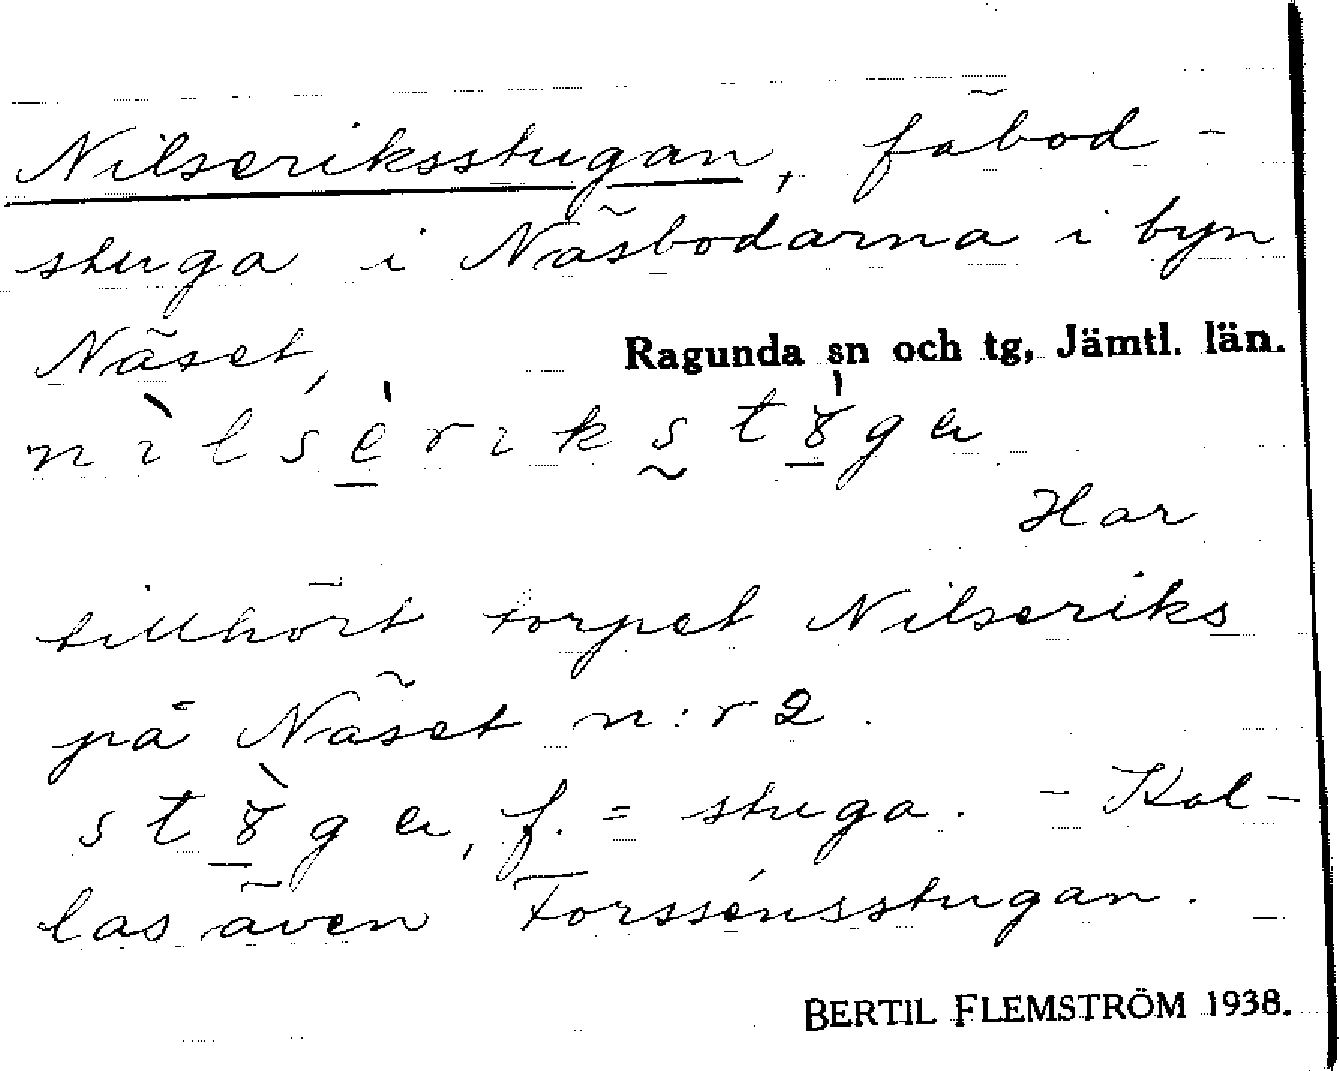 Nilseriksstugan, fäbod-
stuga i Näsbodarna i byn
Näset, Ragunda sn och tg, Jämtl. län.
Har
tillhört torpet Nilseriks
på Näset n:r 2.
= stuga. - Kal-
las även Forssénsstugan.
BERTIL FLEMSTRÖM 1938.